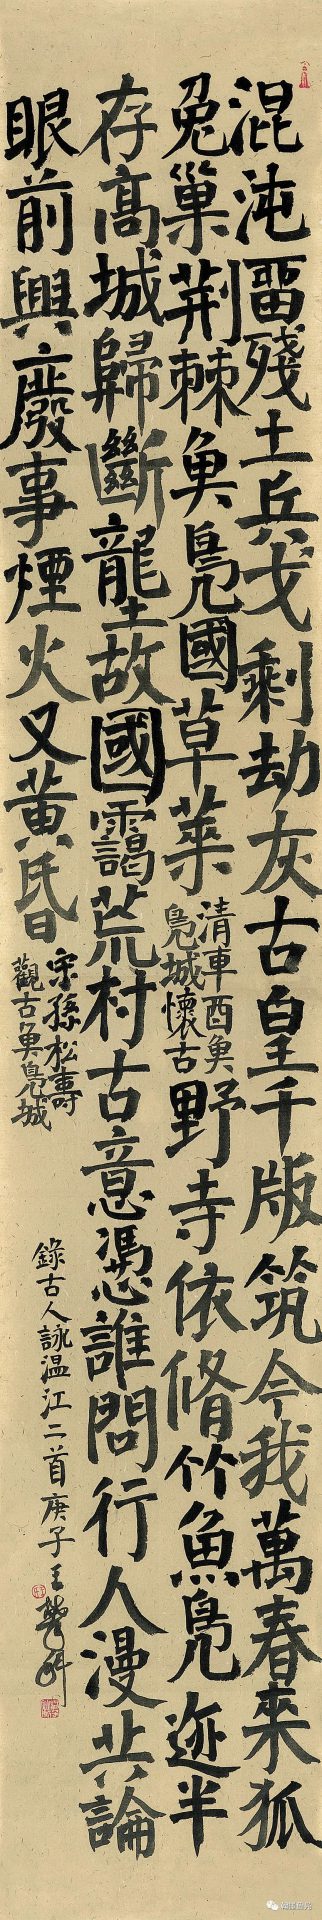 混沌畱殘土兵戈剩劫灰古皇千版筑今我萬春來狐
兔巢荆棘魚鳧國草萊
清車酉魚
鳧城懷古
野寺依脩竹魚鳧迹半
存高城歸斷壟故國靄荒村古意憑誰問行人漫共論
眼前興廢事煙火又黃昏
宋孫松壽
觀古魚鳧城
錄古人詠温江二首庚子王